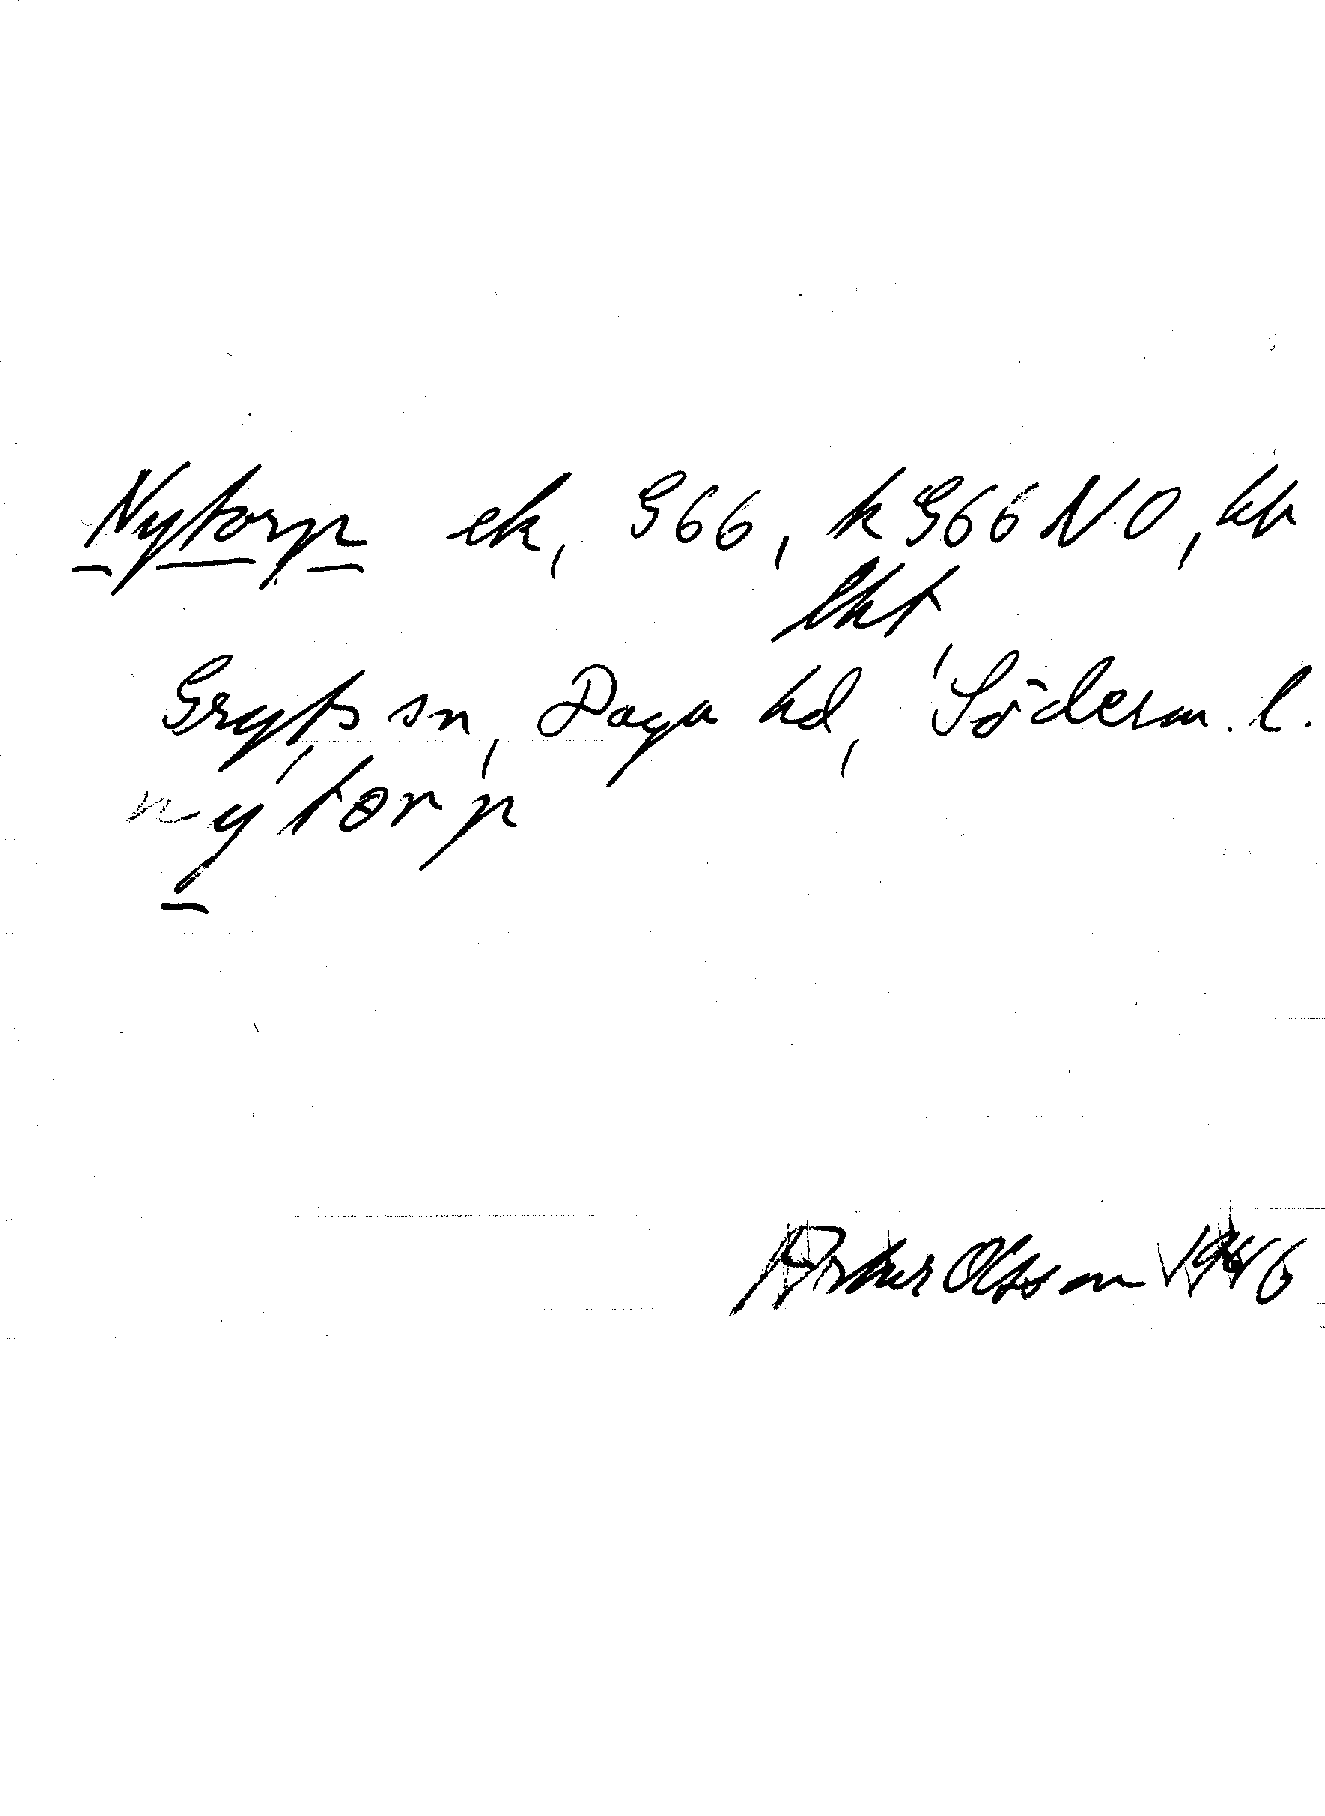 Nytorp ek, G66, k G66 NO, kh
lht,
Gryts sn, Daga hd, Söderm. l.
nytorp
Artur Olsson 1946